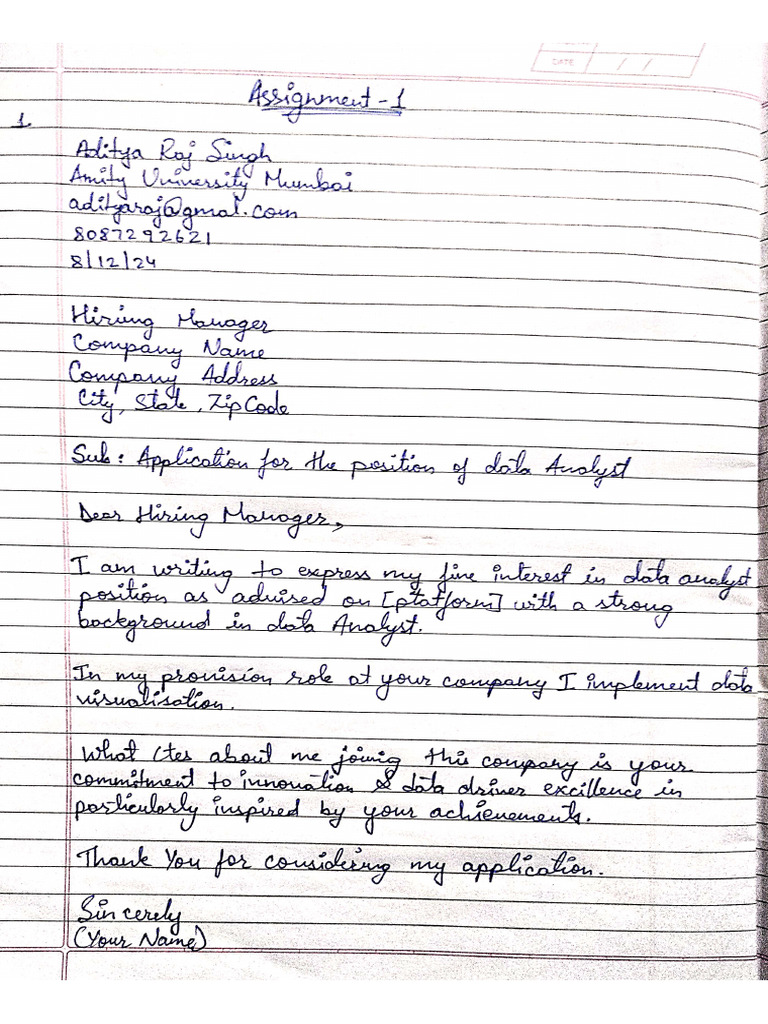 DATE / /
Assignment - 1
1.
Aditya Raj Singh
Amity University Mumbai
adityaraj@gmal.com
8087292621
8/12/24
Hiring Manager
Company Name
Company Address
City, State, Zip Code
Sub : Application for the position of data Analyst
Dear Hiring Manager,
I am writing to express my fine interest in data analyst
position as advised on [platform] with a strong
background in data Analyst.
In my provision role at your company I implement data
visualisation.
What about me joinig this company is your
commitment to innovation & data driver excillence in
particularly inspired by your achievements.
Thank You for considering my application.
Sincerely
(Your Name)